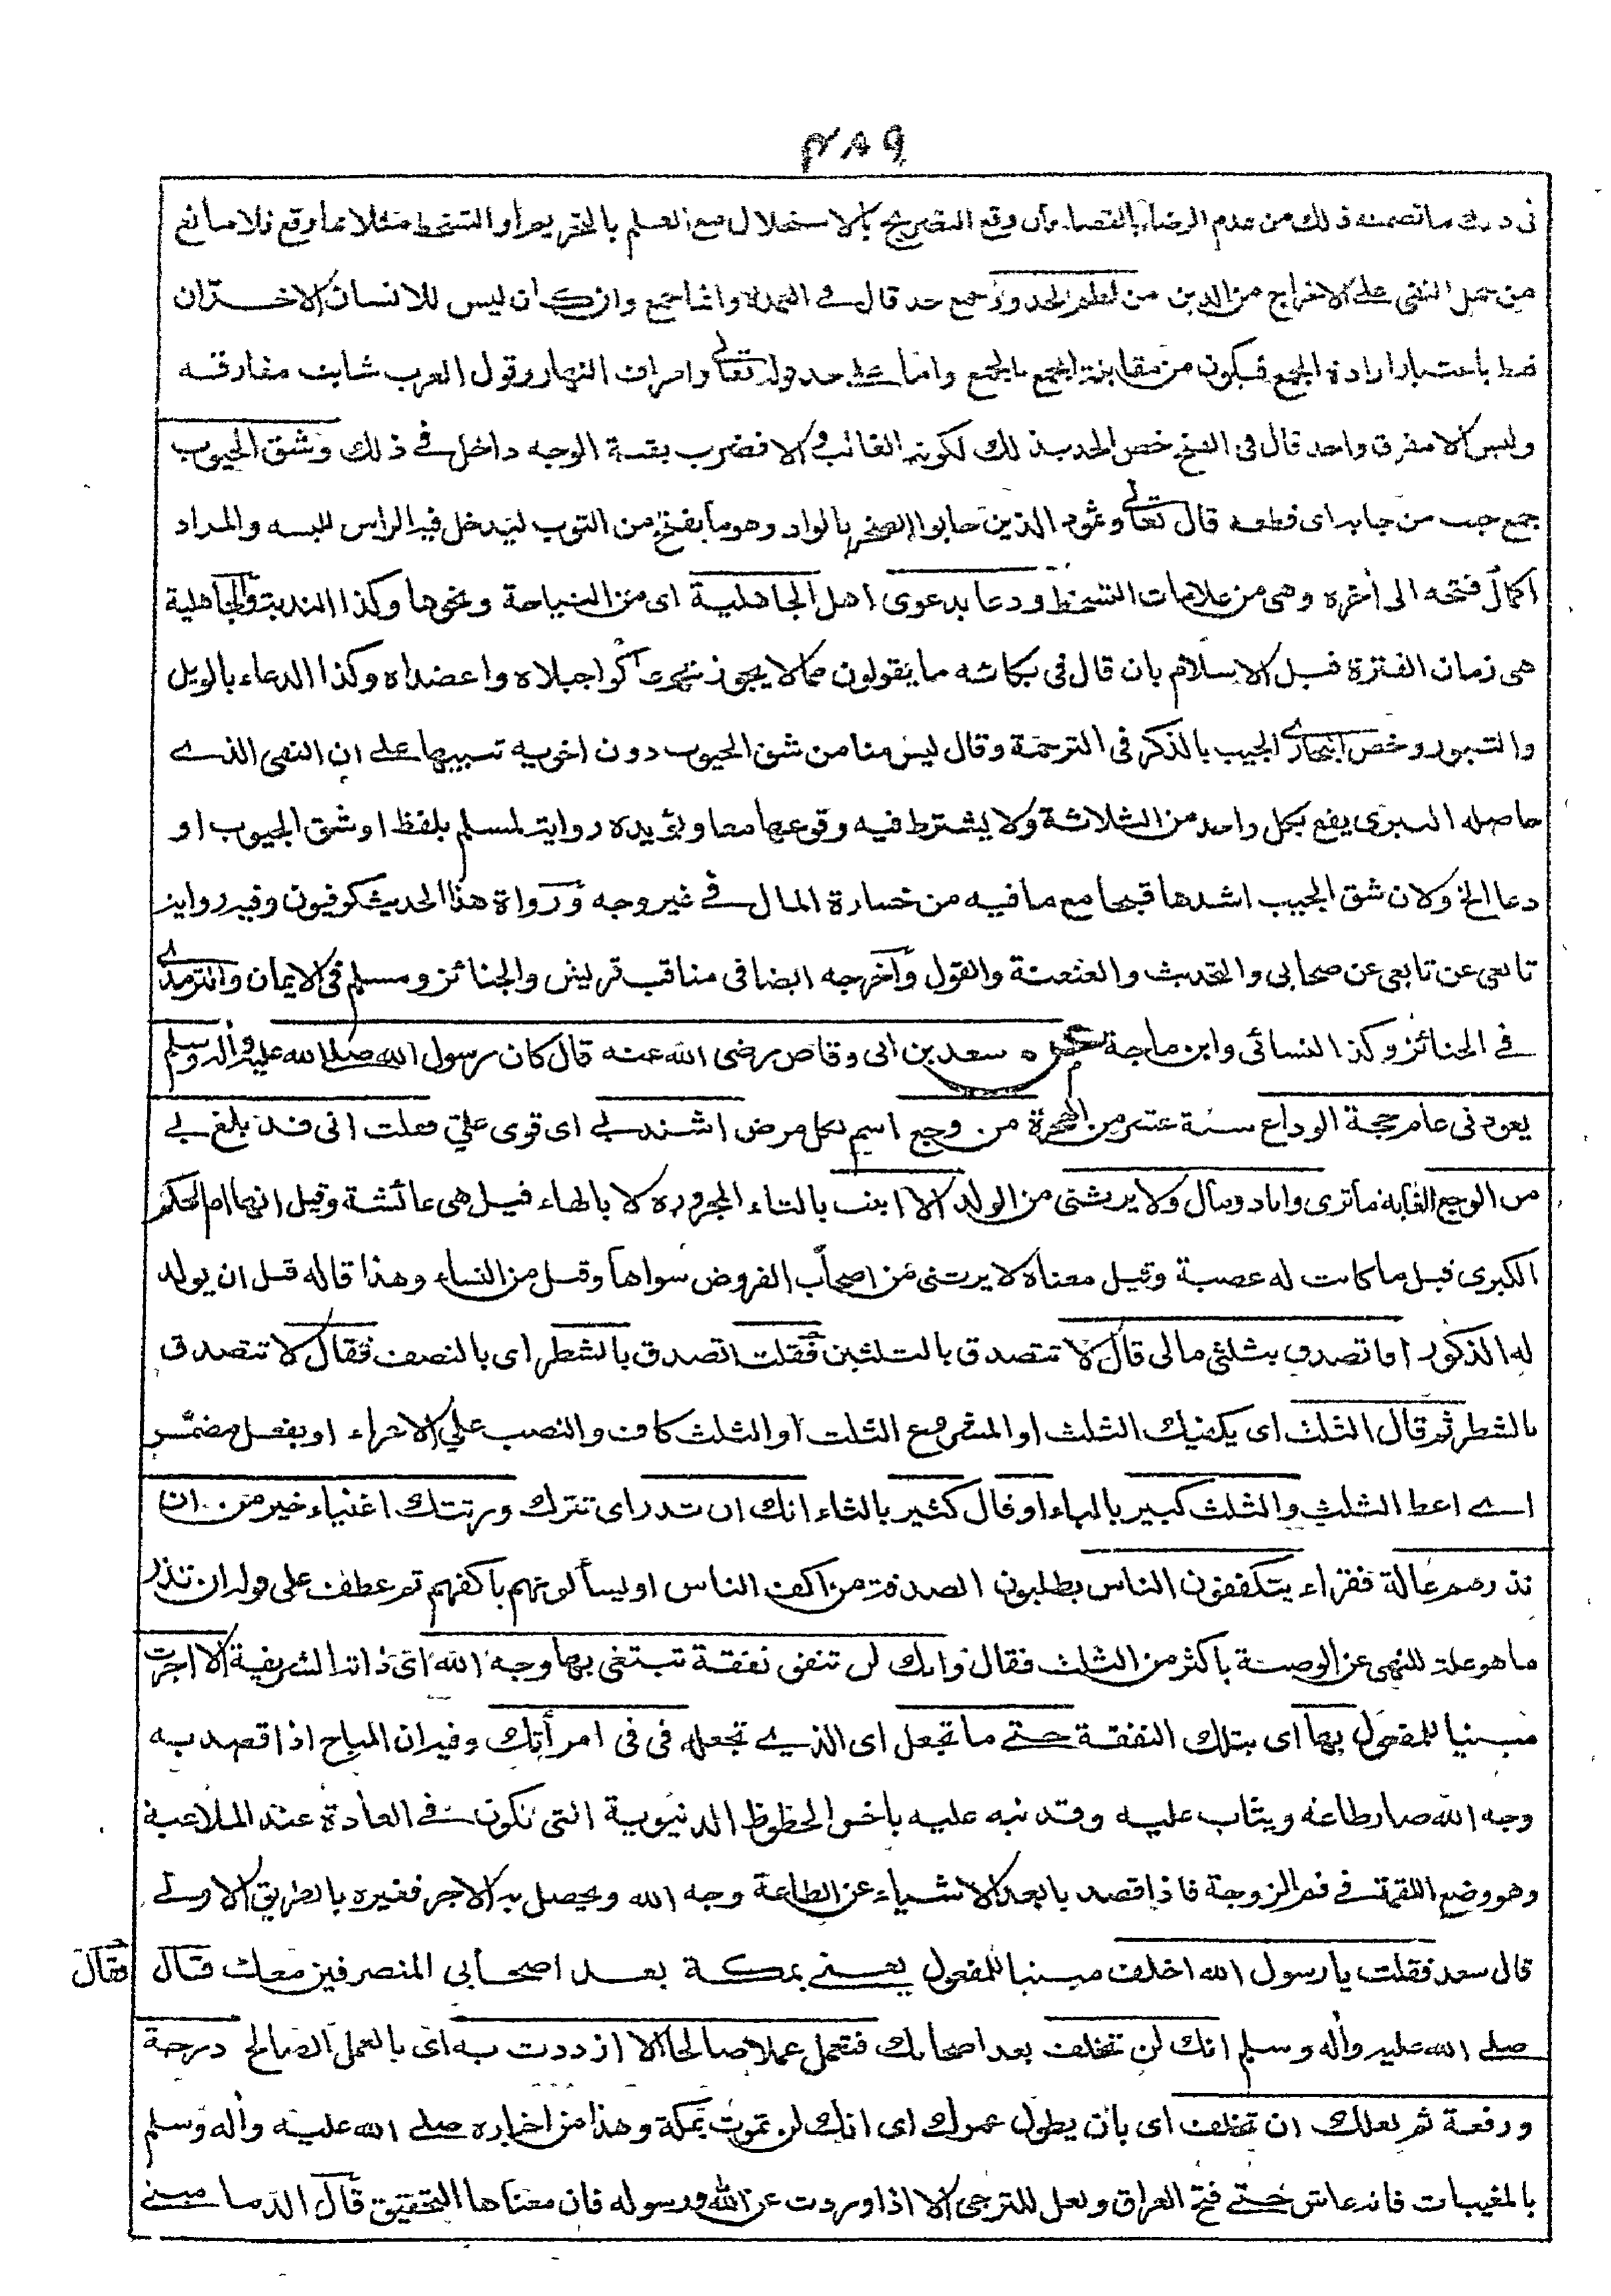 ٣٨٩
فى ذلك ما تضمنه ذلك من عدم الرضاء بالقضاء فان وقع التصريح بالاستحلال مع العلم بالتحريم او التسخط مثلا بما وقع فلا مانع
من حمل النفى على الاخراج من الدين من لطم الخدود جمع خد قال فى العمدة وانما جمع وان كان ليس للانسان الا خدان
فقط باعتبار ارادة الجمع فيكون من مقابلة الجمع بالجمع واما على حد قوله تعالى واطراف النهار وقول العرب شابت مفارقه
وليس الا مفرق واحد قال فى الفتح خص الخد بذلك لكونه الغالب والا فضرب بقية الوجه داخل فى ذلك وشق الجيوب
جمع جيب من جابه اى قطعه قال تعالى وثمود الذين جابوا الصخر بالواد وهو ما يفتح من الثوب ليدخل فيه الراس للبسه والمراد
اكمال فتحه الى اخره وهى من علامات التسخط ودعا بدعوى اهل الجاهلية اى من النياحة ونحوها وكذا الندبة والجاهلية
هى زمان الفترة قبل الاسلام بان قال فى بكائه ما يقولون مما لا يجوز شرعا كواجبلاه واعضداه وكذا الدعاء بالويل
والثبور وخص البخارى الجيب بالذكر فى الترجمة وقال ليس منا من شق الجيوب دون اخويه تنبيها على ان النفى الذى
حاصله التبرى يقع بكل واحد من الثلاثة ولا يشترط فيه وقوعها معا ويؤيده رواية لمسلم بلفظ او شق الجيوب او
دعا الخ ولان شق الجيب اشدها قبحا مع ما فيه من خسارة المال فى غير وجه ورواة هذا الحديث كوفيون وفيه رواية
تابعى عن تابعى عن صحابى والتحديث والعنعنة والقول واخرجه ايضا فى مناقب قريش والجنائز ومسلم فى الايمان والترمذى
فى الجنائز وكذا النسائى وابن ماجة عن سعد بن ابى وقاص رضى الله عنه قال كان رسول الله صلى الله عليه واله وسلم
يعود نى عام حجة الوداع سنة عشر من الهجرة من وجع اسم لكل مرض اشتد بى اى قوى على فقلت انى قد بلغ بى
من الوجع الغاية ما ترى وانا ذو مال ولا يرثنى من الولد الا ابنت بالتاء المجرورة لا بالهاء قيل هى عائشة وقيل انها ام الحكم
الكبرى قيل ما كانت له عصبة وقيل معناه لا يرثنى من اصحاب الفروض سواها وقيل من النساء وهذا قاله قبل ان يولد
له الذكور افاتصدق بثلثى مالى قال لا تتصدق بالثلثين فقلت اتصدق بالشطر اى بالنصف فقال لا تتصدق
بالشطر ثم قال الثلث اى يكفيك الثلث او المشروع الثلث او الثلث كاف والنصب على الاغراء او بفعل مضمر
اى اعط الثلث والثلث كبير بالباء او قال كثير بالثاء انك ان تذر اى تترك ورثتك اغنياء خير من ان
تذرهم عالة فقراء يتكففون الناس يطلبون الصدقة من اكف الناس او يسألونهم باكفهم ثم عطف على قوله ان تذر
ما هو علة للنهى عن الوصية باكثر من الثلث فقال وانك لن تنفق نفقة تبتغى بها وجه الله اى ذاته الشريفة الا اجرت
مبنيا للمفعول بها اى بتلك النفقة حتى ما تجعل اى الذى تجعله فى فى امرأتك وفيه ان المباح اذا قصد به
وجه الله صار طاعة ويثاب عليه وقد نبه عليه باخس الحظوظ الدنيوية التى تكون فى العادة عند الملاعبة
وهو وضع اللقمة فى فم الزوجة فاذا قصد بابعد الاشياء عن الطاعة وجه الله ويحصل به الاجر فغيره بالطريق الاولى
قال سعد فقلت يا رسول الله اخلف مبنيا للمفعول يعنى بمكة بعد اصحابى المنصرفين معك قال فقال
صلى الله عليه واله وسلم انك لن تخلف بعد اصحابك فتعمل عملا صالحا الا ازددت به اى بالعمل الصالح درجة
ورفعة ثم لعلك ان تخلف اى بان يطول عمرك اى انك لن تموت بمكة وهذا من اخباره صلى الله عليه واله وسلم
بالمغيبات فانه عاش حتى فتح العراق ولعل للترجى الا اذا وردت عن الله ورسوله فان معناها التحقيق قال الدمامينى